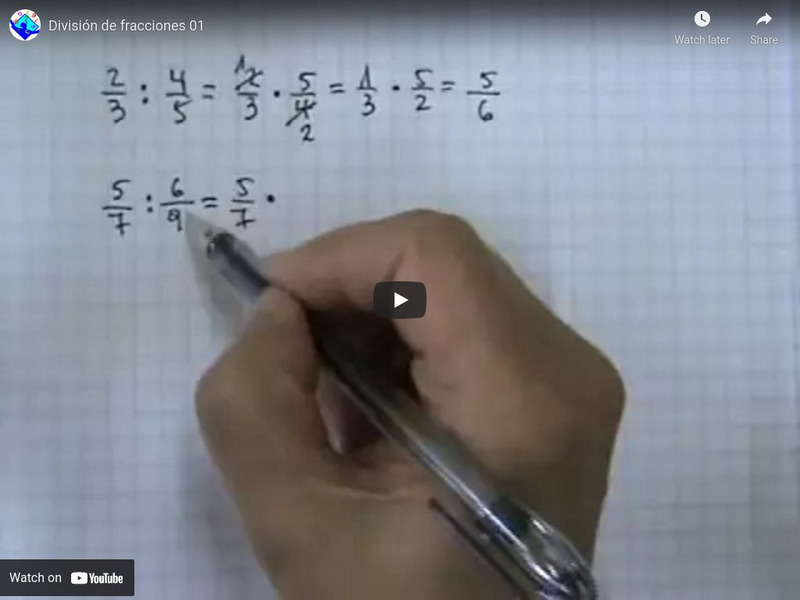 División de fracciones 01
Watch later
Share
2/3 : 4/5 = 2/3 · 5/4 = 1/3 · 5/2 = 5/6
1
2
5/7 : 6/9 = 5/7 ·
Watch on YouTube